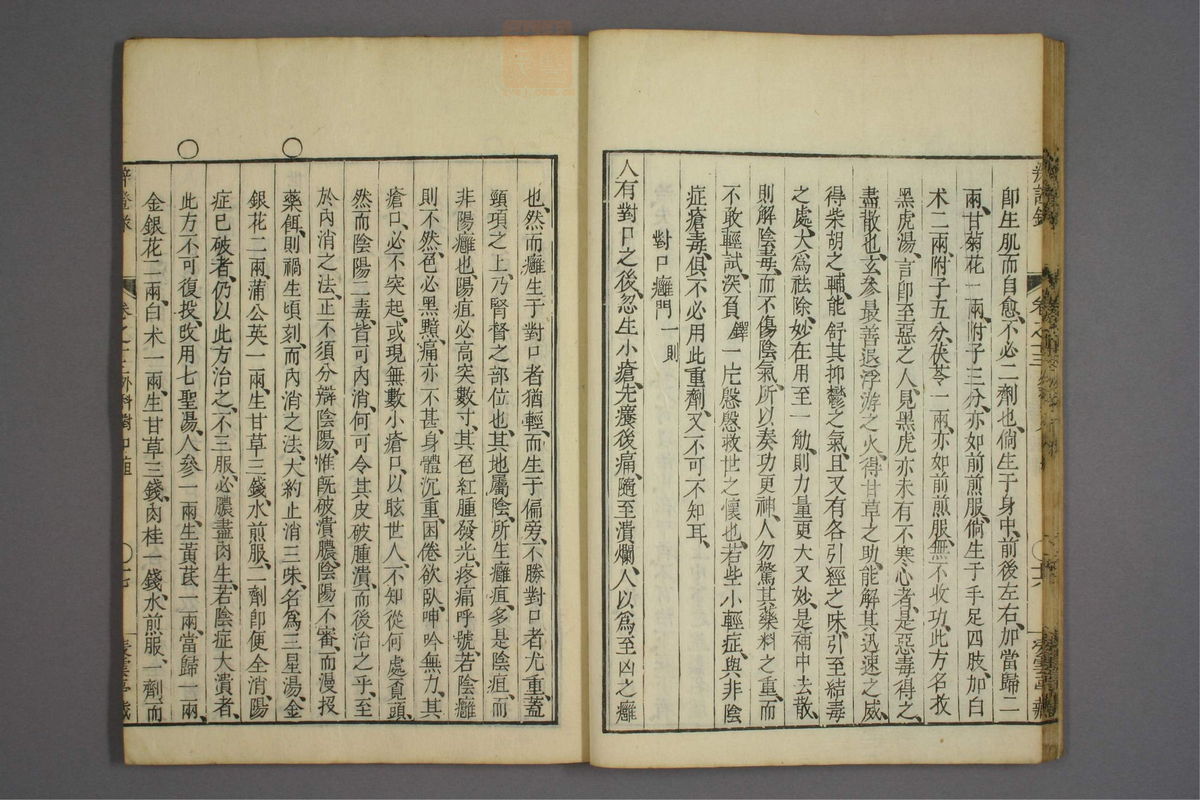 即生肌而自愈、不必二劑也、倘生于身中、前後左右、加當歸二
兩、甘菊花一兩、附子三分、亦如前煎服、倘生于手足四肢、加白
术二兩、附子五分、茯苓一兩、亦如前煎服、無不收功、此方名救
黑虎湯、言卽至惡之人、見黑虎亦未有不寒心者、是惡毒得之、
盡散也、玄參最善退浮游之火、得甘草之助、能解其迅速之威、
得柴胡之輔、能舒其抑鬱之氣、且又有各引經之味、引至結毒
之處、大爲祛除、妙在用至一觔、則力量更大、又妙是補中去散、
則解陰毒、而不傷陰氣、所以奏功更神、人勿驚其藥料之重、而
不敢輕試、深負鐸一片慇慇救世之懷也、若些小輕症、與非陰
症瘡毒、俱不必用此重劑、又不可不知耳、
對口癰門一則
人有對口之後、忽生小瘡、先癢後痛、隨至潰爛、人以爲至凶之癰
也、然而癰生于對口者猶輕、而生于偏旁、不勝對口者尤重、蓋
頸項之上、乃腎督之部位也、其地屬陰、所生癰疽、多是陰疽、而
非陽癰也、陽疽必高突數寸、其色紅腫發光、疼痛呼號、若陰癰
則不然、色必黑黯、痛亦不甚、身體沉重、困倦欲臥、呻吟無力、其
瘡口、必不突起、或現無數小瘡口、以眩世人、不知從何處覓頭、
然而陰陽二毒、皆可內消、何可令其皮破腫潰、而後治之乎、至
於內消之法、正不須分辨陰陽、惟旣破潰膿、陰陽不審、而漫投
藥餌、則禍生頃刻、而內消之法、大約止消三味、名爲三星湯、金
銀花二兩、蒲公英一兩、生甘草三錢、水煎服、二劑卽便全消、陽
症已破者、仍以此方治之、不三服、必膿盡肉生、若陰症大潰者、
此方不可復投、改用七聖湯、人參一兩、生黃芪一兩、當歸一兩、
金銀花二兩、白术一兩、生甘草三錢、肉桂一錢、水煎服、一劑而